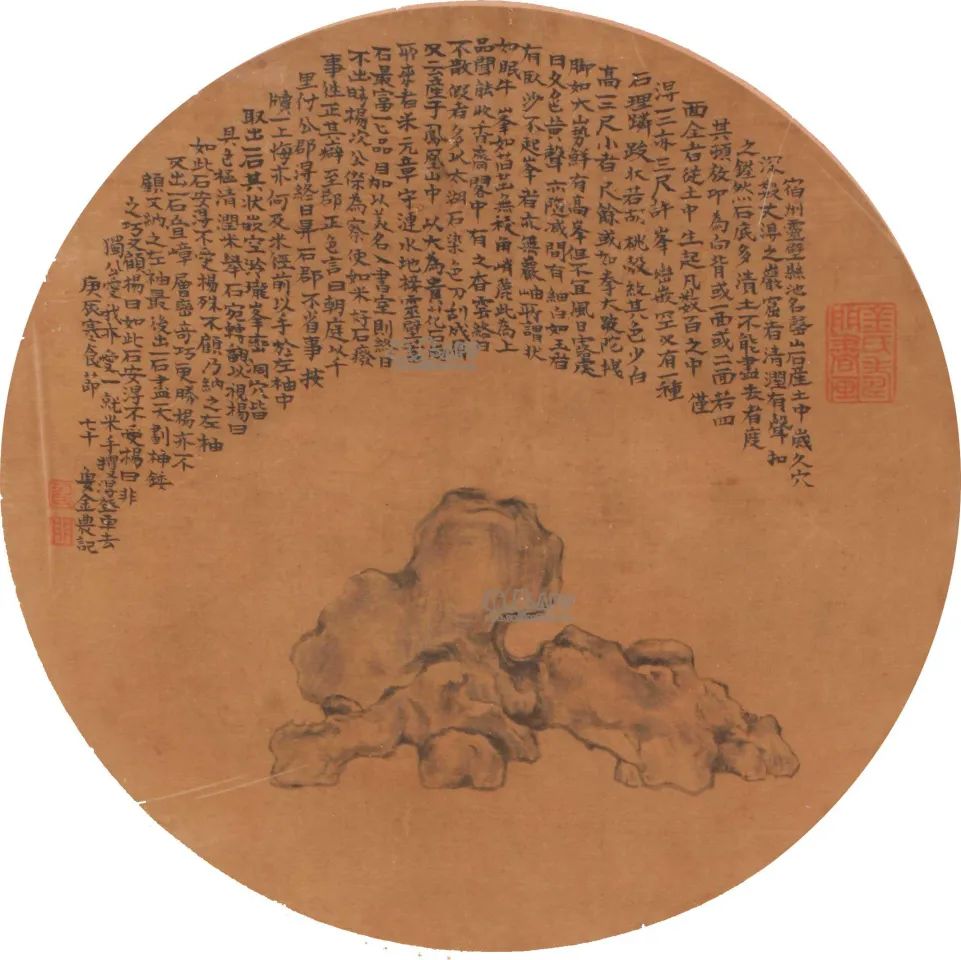 宿州靈壁縣池名磬山石產土中歲久穴
深數丈得之巖窟者清潤有聲扣
之鏗然石底多清土不能盡去者度
其頓放即為向背或一面或二面若四
面全者從土中生起凡數百之中僅
得一二亦二尺許峯巒嵌空又有一種
石理嶙峻狀若胡桃殼紋其色少白
高二三尺小者尺餘或如拳大陂陀拽
脚如大山勢鮮有高峯但不宜風日露處
日久色皆聲亦隨減間有細白如玉者
有臥沙不起峯者亦無巖岫所謂狀
如眠牛峯如菡萏無枝角峭麓此為上
品間能收古齋閣中有之香雲終日
不散假者多以太湖石染色刀刮成
又云產于鳳凰山中以大為貴花石
來者米元章守漣水地接靈壁
石最富一一品目加以美名入書室則終日
不出時楊次公傑為察使知米好石廢
事往正其癖至郡正色言曰朝庭以千
里付公郡得終日弄石郡不省事按
牘一上悔亦何及米徑前以手於左袖中
取出一石其狀嵌空玲瓏峯巒洞穴皆
具色極清潤米舉石宛轉翻以視楊曰
如此石安得不愛楊殊不顧乃納之左袖
又出一石疊嶂層巒奇巧更勝楊亦不
顧又納之左袖最後出一石盡天劃神鏤
之巧又顧楊曰如此石安得不愛楊曰非
獨公愛我亦愛一就米手攫得登車去
庚辰寒食節 七十 叟金農記